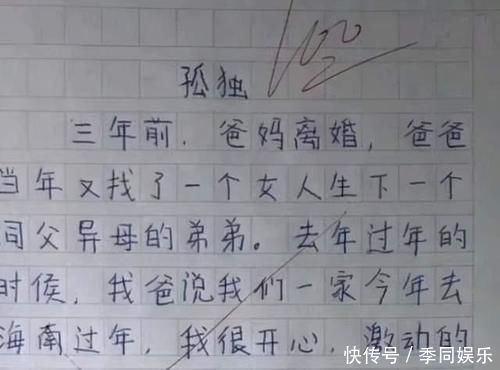 100
孤独
三年前，爸妈离婚，爸爸
当年又找了一个女人生下一个
同父异母的弟弟。去年过年的
时候，我爸说我们一家今年去
海南过年，我很开心，激动的
快传号/季同娱乐